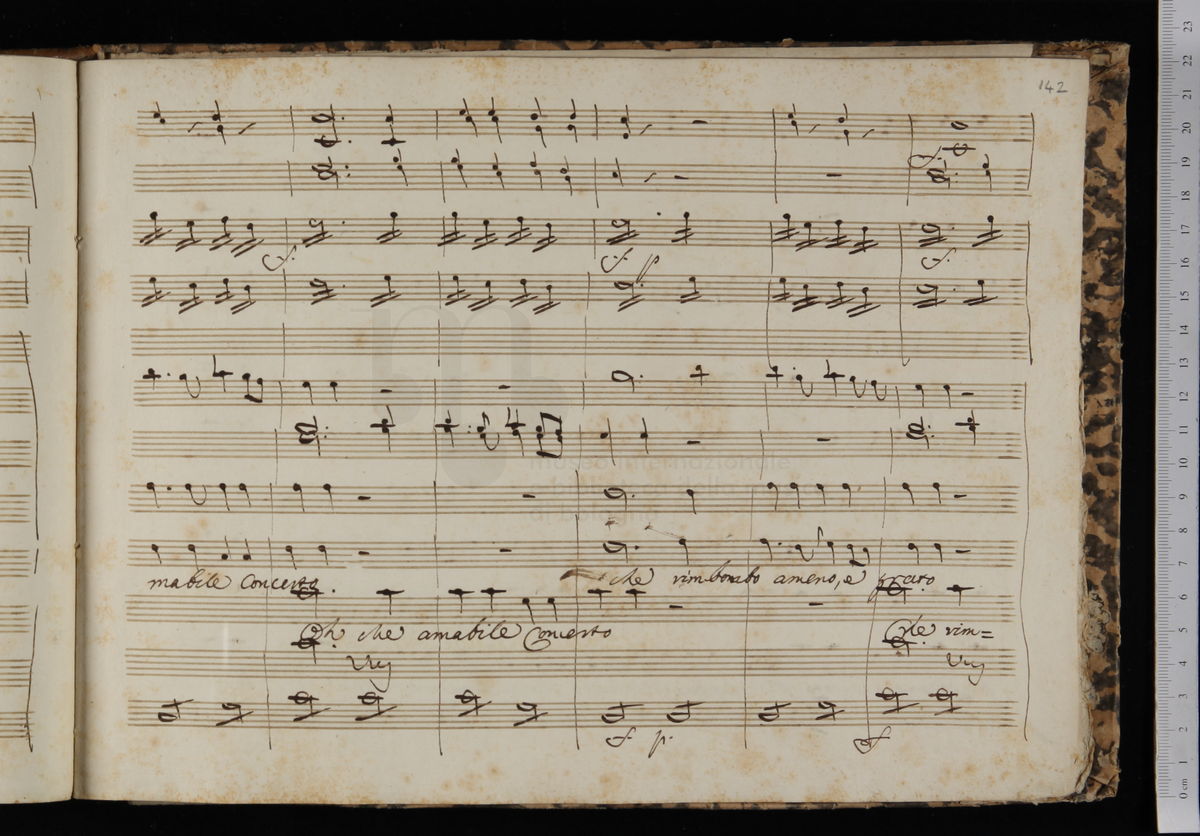 142
f.
f.
f. p
f.
museo internazionale
di bologna
mabile Concerto che rimbombo ameno, e grato
Oh che amabile Concerto Che rim=
Vnj Vnj
f p. f
23
22
21
20
19
18
17
16
15
14
13
12
11
10
9
8
7
6
5
4
3
2
1
0 cm